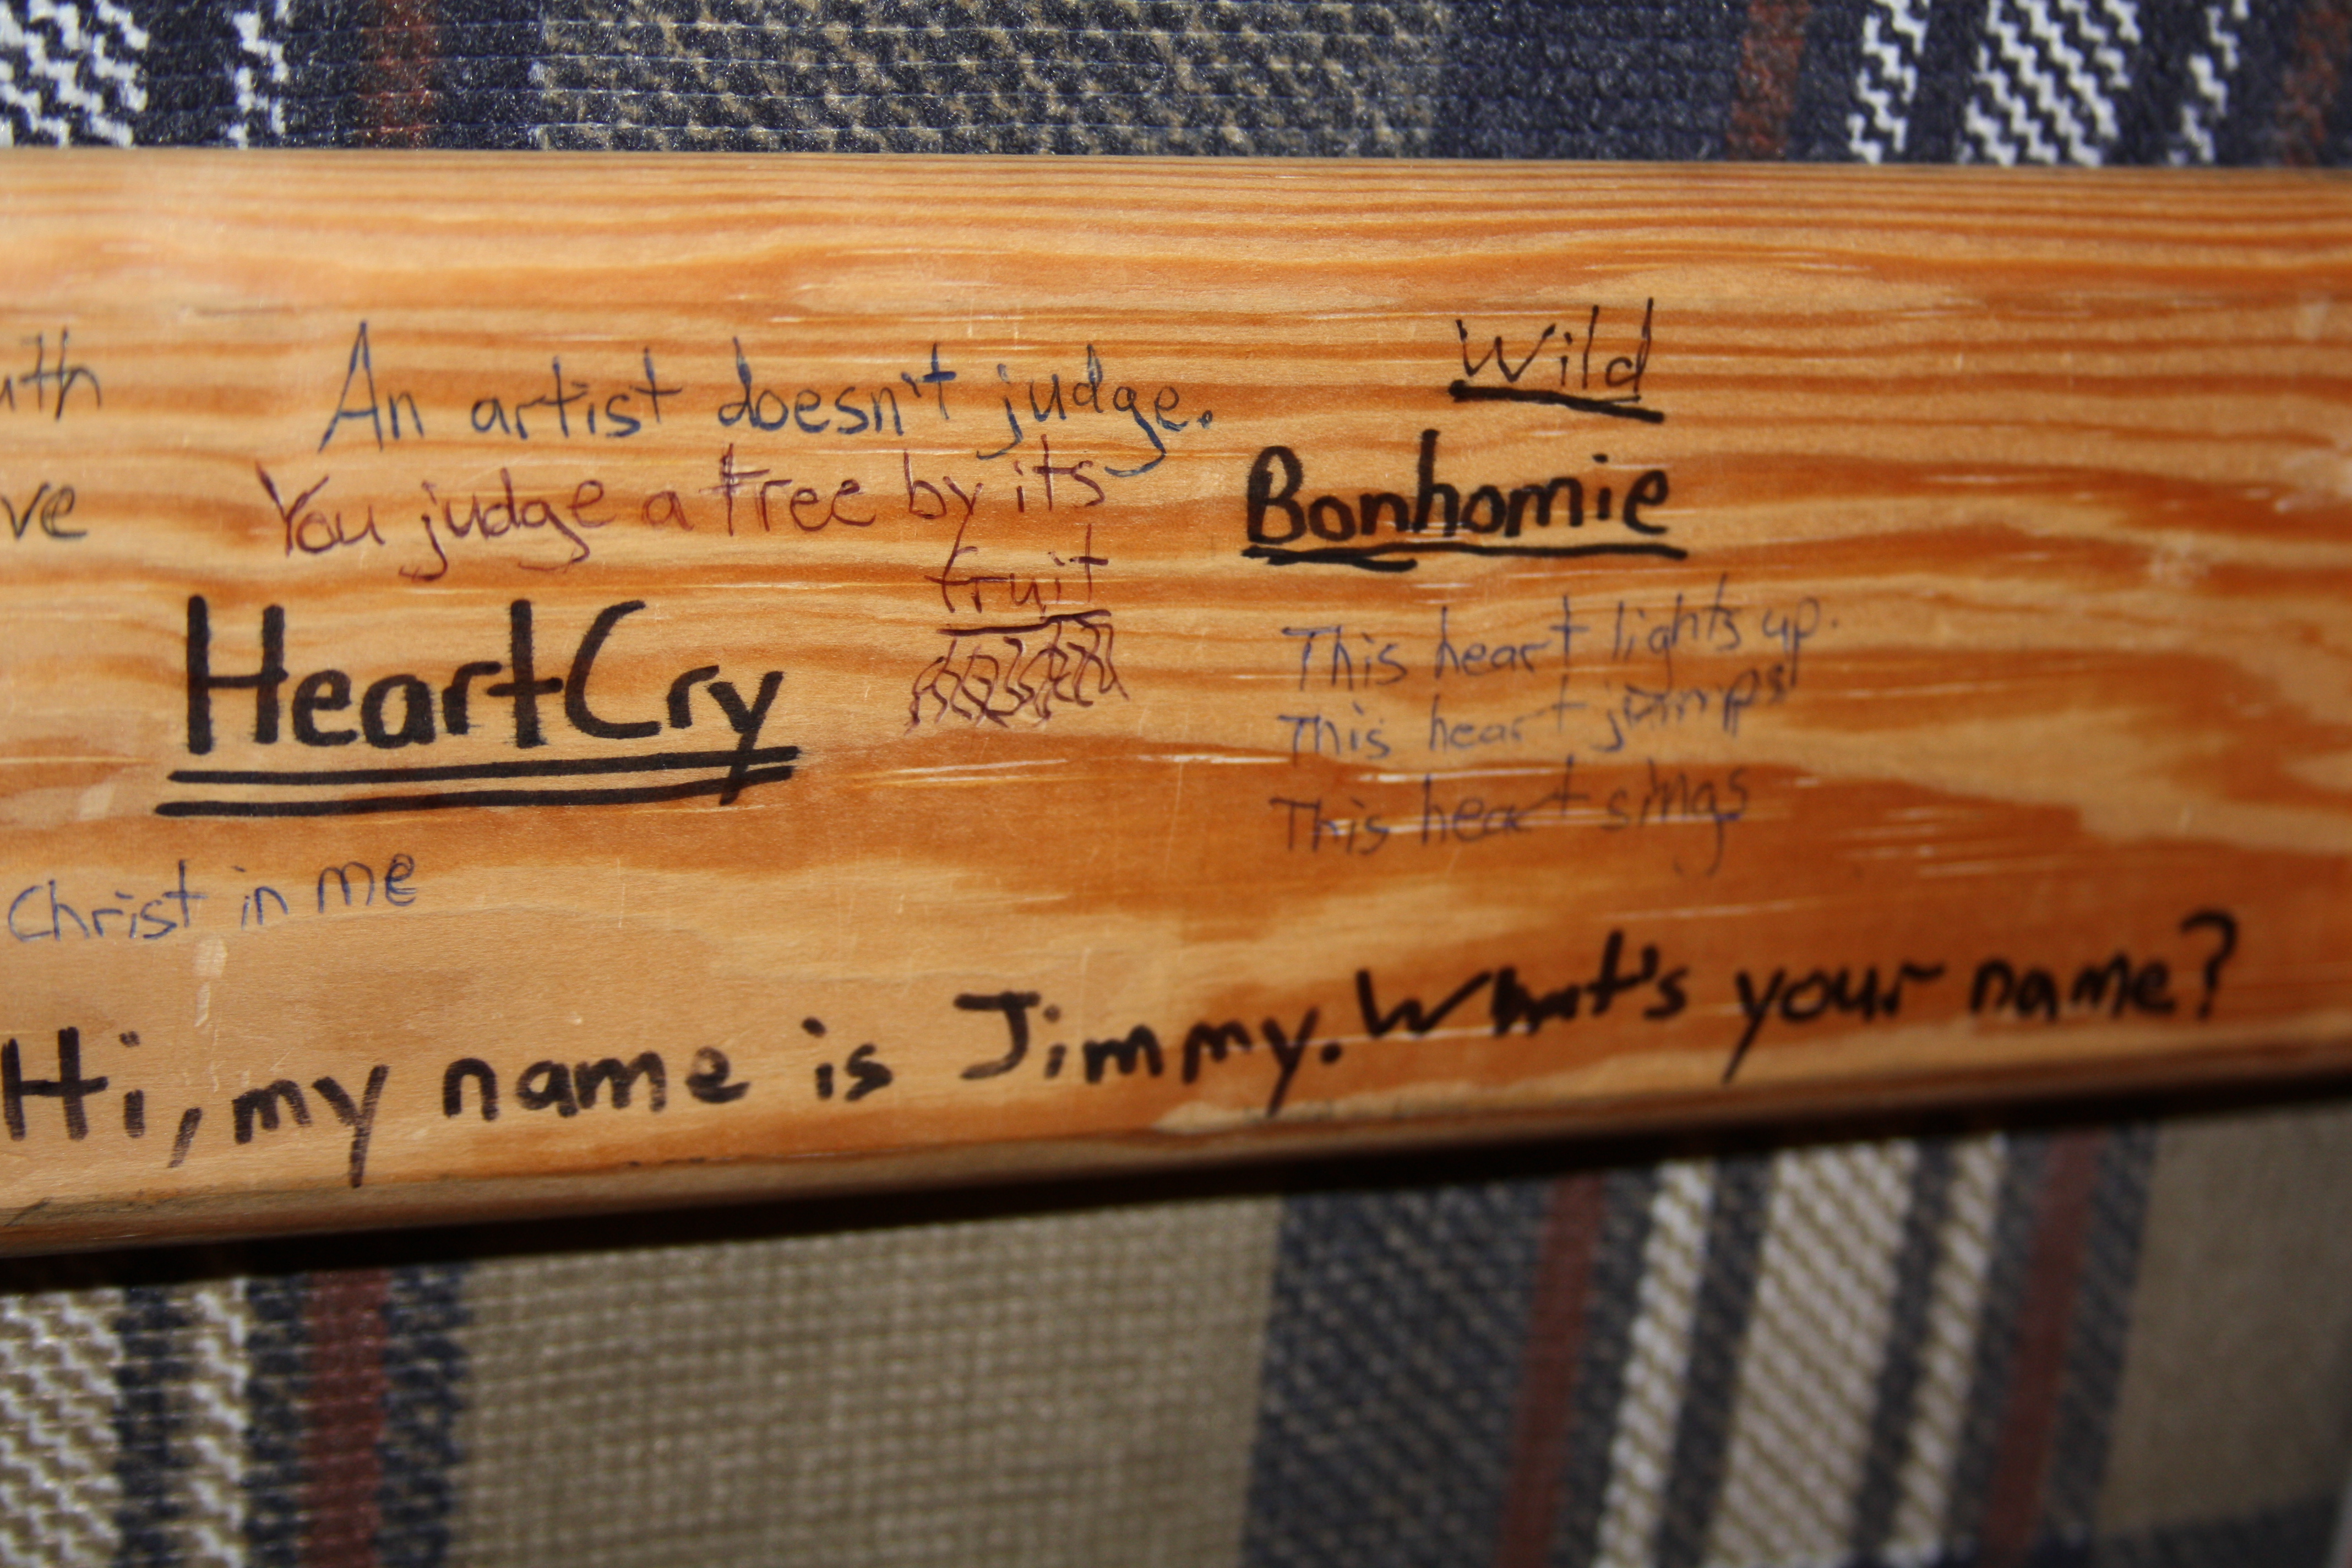 An artist doesn't judge.
You judge a tree by its
fruit
HeartCry
Christ in me
Wild
Bonhomie
This heart lights up.
This heart jumps
This heart sings
Hi, my name is Jimmy. What's your name?